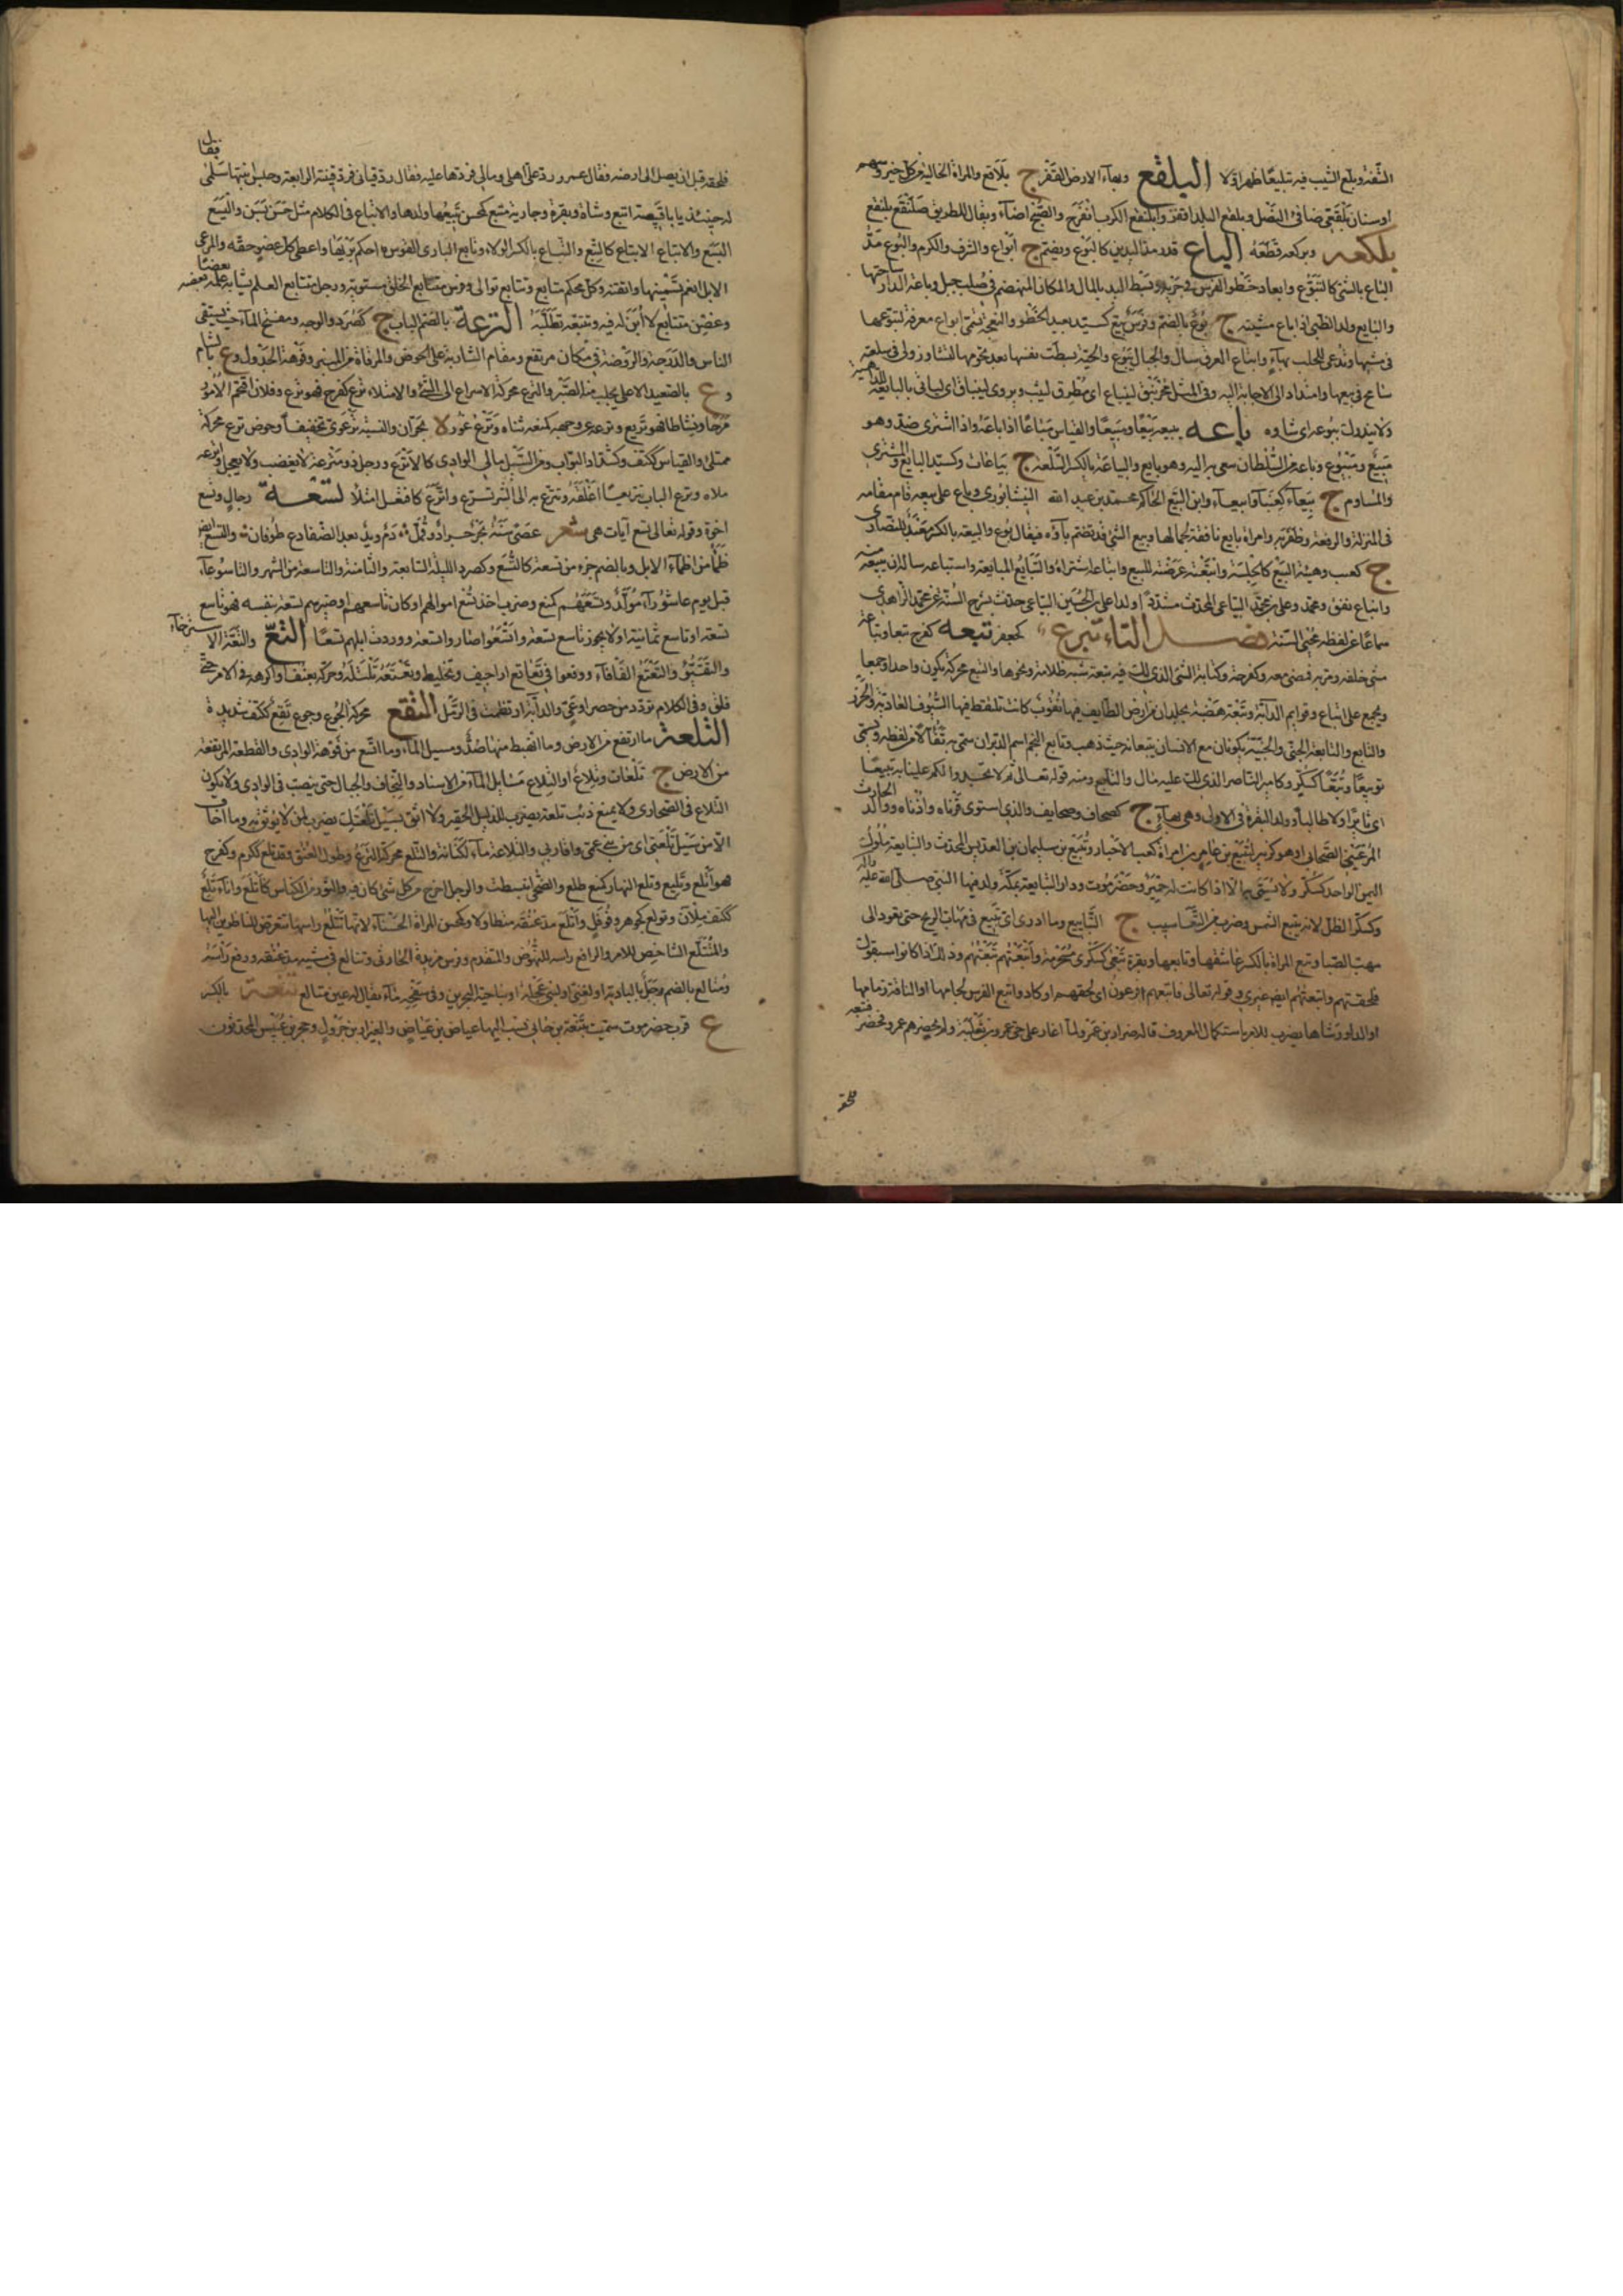 الشفة وبلع الشيب فيه تبليعا ظهر اولا البلقع وبهاء الارض القفر ج بلاقع والمراة الخالية من كل خير وسهم
اوسنان بلقعى صافى النصل وبلقع البلد اقفر وابلنقع الكرب انفرج والصبح اضاء ويقال للطريق صلنقع بلنقع
بلكعه وبركعه قطعه الباع قدر مد اليدين كالبوع ويضم ج ابواع والشرف والكرم والبوع مد
الباع بالشئ كالتبوع وابعاد خطو الفرس فى جريه وبسط اليد بالمال والمكان المنهضم فى لصب جبل وباعة الدار ساحتها
والبايع ولد الظبى اذا باع فى مشيته ج بوع بالضم وفرس بيع كسيد بعيد الخطو والنعجة تسمى ابواع معرفة لتبوعها
فى مشيها وتدعى للحلب بها وانباع العرق سال والحبال تبوع والحية بسطت نفسها بعد تحويها لتشاور ولى فى سلعته
سامح فى بيعها وامتد الى الاجابة اليه وفى المثل مخرنبق لينباع اى مطرق ليثب ويروى لينباق اى لياتى بالبايقة للداهية
ولا يدرك تبوعه اى شاوه باعه يبيعه بيعا ومبيعا والقياس مباعا اذا باعه واذا اشتراه ضد وهو
مبيع ومبيوع وباعه من السلطان سعى به اليه وهو بايع والبياعة بالكسر السلعة ج بياعات وكسيد البايع والمشترى
والمساوم ج بيعاء كعنباء وابيعاء وابن البيع الحاكم محمد بن عبد الله النيسابورى وباع على بيعه قام مقامه
فى المنزلة والرفعة وظفر به وامراة بايع نافقة لجمالها وبيع الشئ قد تضم باؤه فيقال بوع والبيعة بالكسر متعبد للنصارى
ج كعنب وهيئة البيع كالجلسة وابعته عرضته للبيع وابتاعه اشتراه والتبايع المبايعة واستباعه ساله ان يبيعه منه
وانباع نفق ومحمد وعلى بن محمد البياعى المحدث مشددة اولداعلى بن الحسين البياعى حدث بشرح السنة عن محمد الزاهدى
سماعا من لفظه محيى السنة فصل التاء تبرع كجعفر تبعه كفرح تبعا وتباعة
مشى خلفه ومر به فمضى معه وكفرحة وكتابة الشئ الذى لك فيه تبعة شبه ظلامة ونحوها والتبع محركة يكون واحدا وجمعا
ويجمع على اتباع وقوايم الدابة وتبعة هضبة بجلدان من ارض الطايف فيها نقوب كانت تلتقط فيها السيوف العادية والخرز
والتابع والتابعة الجنى والجنية يكونان مع الانسان يتبعانه حيث ذهب وتابع النجم اسم الدبران سمى به تفاؤلا من لفظه ويسمى
تويبعا وتبعا كسكر وكامير الناصر الذى لك عليه مال والتابع ومنه قوله تعالى ثم لا تجدوا لكم علينا به تبيعا
اى ثائرا ولا طالبا وولد البقرة فى الاولى وهى بهاء ج كصحاف وصحايف والذى استوى قرناه واذناه ووالد الحارث
الرعينى الصحابى او هو كزبير لتبيع بن عامر بن امراة كعب الاحبار وتبيع بن سليمان بن العدبس المحدث والتبابعة ملوك
اليمن الواحد كسكر ولا يسمى به الا اذا كانت له حمير وحضرموت ودار التبابعة بمكة ولد فيها النبى صلى الله عليه واله
وكسكر الظل لانه يتبع الشمس وضرب من اليعاسيب ج التبابيع وما ادرى اى تبع فى مهاب الريح حتى يعود الى
مهب الصبا وتبع المراة بالكسر عاشقها وتابعها وبقرة تبعى كسكرى مستحرمة واتبعتهم تبعتهم وذلك اذا كانوا سبقوك
فلحقتهم واتبعتهم ايضا غيرى وقوله تعالى فاتبعهم فرعون اى لحقهم او كاد واتبع الفرس لجامها او الناقة زمامها
او الدلو ورشاها يضرب للامر باستكمال المعروف قاله ضرار بن عمرو لما اغار على حى عمرو بن ثعلبة ولم يحضرهم عمرو فحضر فتبعه
فلحقه
فلحقه قبل ان يصل الى ارضه فقال عمرو رد على اهلى ومالى فردها عليه فقال رد قيانى فرد قينته الرابعة وحبس ابنتها سلمى فقال
له حينئذ يا ابا قبيصة اتبع وشاة وبقرة وجارية متبع كمحسن يتبعها ولدها والاتباع فى الكلام مثل حسن بسن والتبيع
التبع والاتباع الاتباع كالتبع والتباع بالكسر الولاء وتابع البارى القوس احكم بريها واعطى كل عضو حقه والمرعى
الابل انعم تسمينها واتقنه وكل محكم متابع وتتابع توالى وفرس متتابع الخلق مستويه ورجل متتابع العلم يشابه علمه بعضه بعضا
وغصن متتابع لا ابن له فيه وتتبعه تطلبه الترعة بالضم الباب ج كصرد والوجه ومفتح الماء حيث يستقى
الناس والدرجة والروضة فى مكان مرتفع ومقام الشاربة على الحوض والمرقاة من المنبر وفوهة الجدول وع بالشام
وع بالصعيد الاعلى يجلب منه الصبر والترع محركة الاسراع الى الشئ والامتلاء ترع كفرح فهو ترع وفلان اقتحم الامور
مرحا ونشاطا فهو تريع وترعه عن وجهه كمنعه ثناه وترع عوز لا بحران والنسبة ترعوزى تخفيفا وحوض ترع محركة
ممتلئ والقياس ككتف وكشداد البواب ومن السيل مالئ الوادى كالاترع ورجل ذو مترعة لا يغضب ولا يعجل واترعه
ملاه وترع الباب تتريعا اغلقه وتترع به الى الشر تسرع واترع كافتعل امتلا تسعه رجال وتسع
اخوة وقوله تعالى تسع آيات هى شعر عصى سنة بحر جراد وقمل دم ويد بعد الضفادع طوفان والتسع ايضا
ظمأ من اظماء الابل وبالضم جزء من تسعة كالتسع وكصرد الليلة السابعة والثامنة والتاسعة من الشهر والتاسوعاء
قبل يوم عاشوراء مولد وتسعهم كمنع وضرب اخذ تسع اموالهم او كان تاسعهم او صيرهم تسعة بنفسه فهو تاسع
تسعة وتاسع ثمانية ولا يجوز تاسع تسعة واتسعوا صاروا تسعة ووردت ابلهم تسعا التع والتعة الاسترخاء
والتقيؤ والتعتع الفافاء ووقعوا فى تعاتع اراجيف وتخليط وتعتعه تلتله وحركه بعنف او اكرهه فى الامر حتى
قلق وفى الكلام تردد من حصر او عى والدابة ارتطمت فى الرمل التقع محركة الجوع وجوع تقع ككتف شديد ة
التلعة ما ارتفع من الارض وما انهبط منها ضد ومسيل الماء وما اتسع من فوهة الوادى والقطعة المرتفعة
من الارض ج تلعات وتلاع او التلاع مسايل الماء من الاسناد والنجاف والجبال حتى ينصب فى الوادى ولا يكون
التلاع فى الصحارى ولا يمنع ذنب تلعة يضرب للذليل الحقير ولا اثق بسيل تلعتك يضرب لمن لا يوثق به وما اخاف
الا من سيل تلعتى اى من بنى عمى واقاربى والتلاعة ماء لكنانة والتلع محركة الترع وطول العنق وقد تلع ككرم وكفرح
هو اتلع وتليع وتلع النهار كمنع طلع والضحى انبسطت والرجل اخرج من كل شئ كان فيه والثور من الكناس كاتلع واناء تلع
ككتف ملآن وتولع كجوهر وفوفل واتلع مد عنقه متطاولا وكمحسن المراة الحسناء لانها تتلع راسها تتعرض للناظرين اليها
والمتتلع الشاخص للامر والرافع راسه للنهوض والمتقدم وفرس مزيدة الحارثى وتتالع فى مشيه مد عنقه ورفع راسه
ومتالع بالضم جبل بالبادية او لغنى او لبنى عميلة او بناحية البحرين وفى سفحه ماء يقال له عين متالع تنعة بالكسر
ع قرب حضرموت سميت بتنعة بن هانى نسب اليها عياض بن عياض والعيزار بن جرول وحجر بن عنبس المحدثون